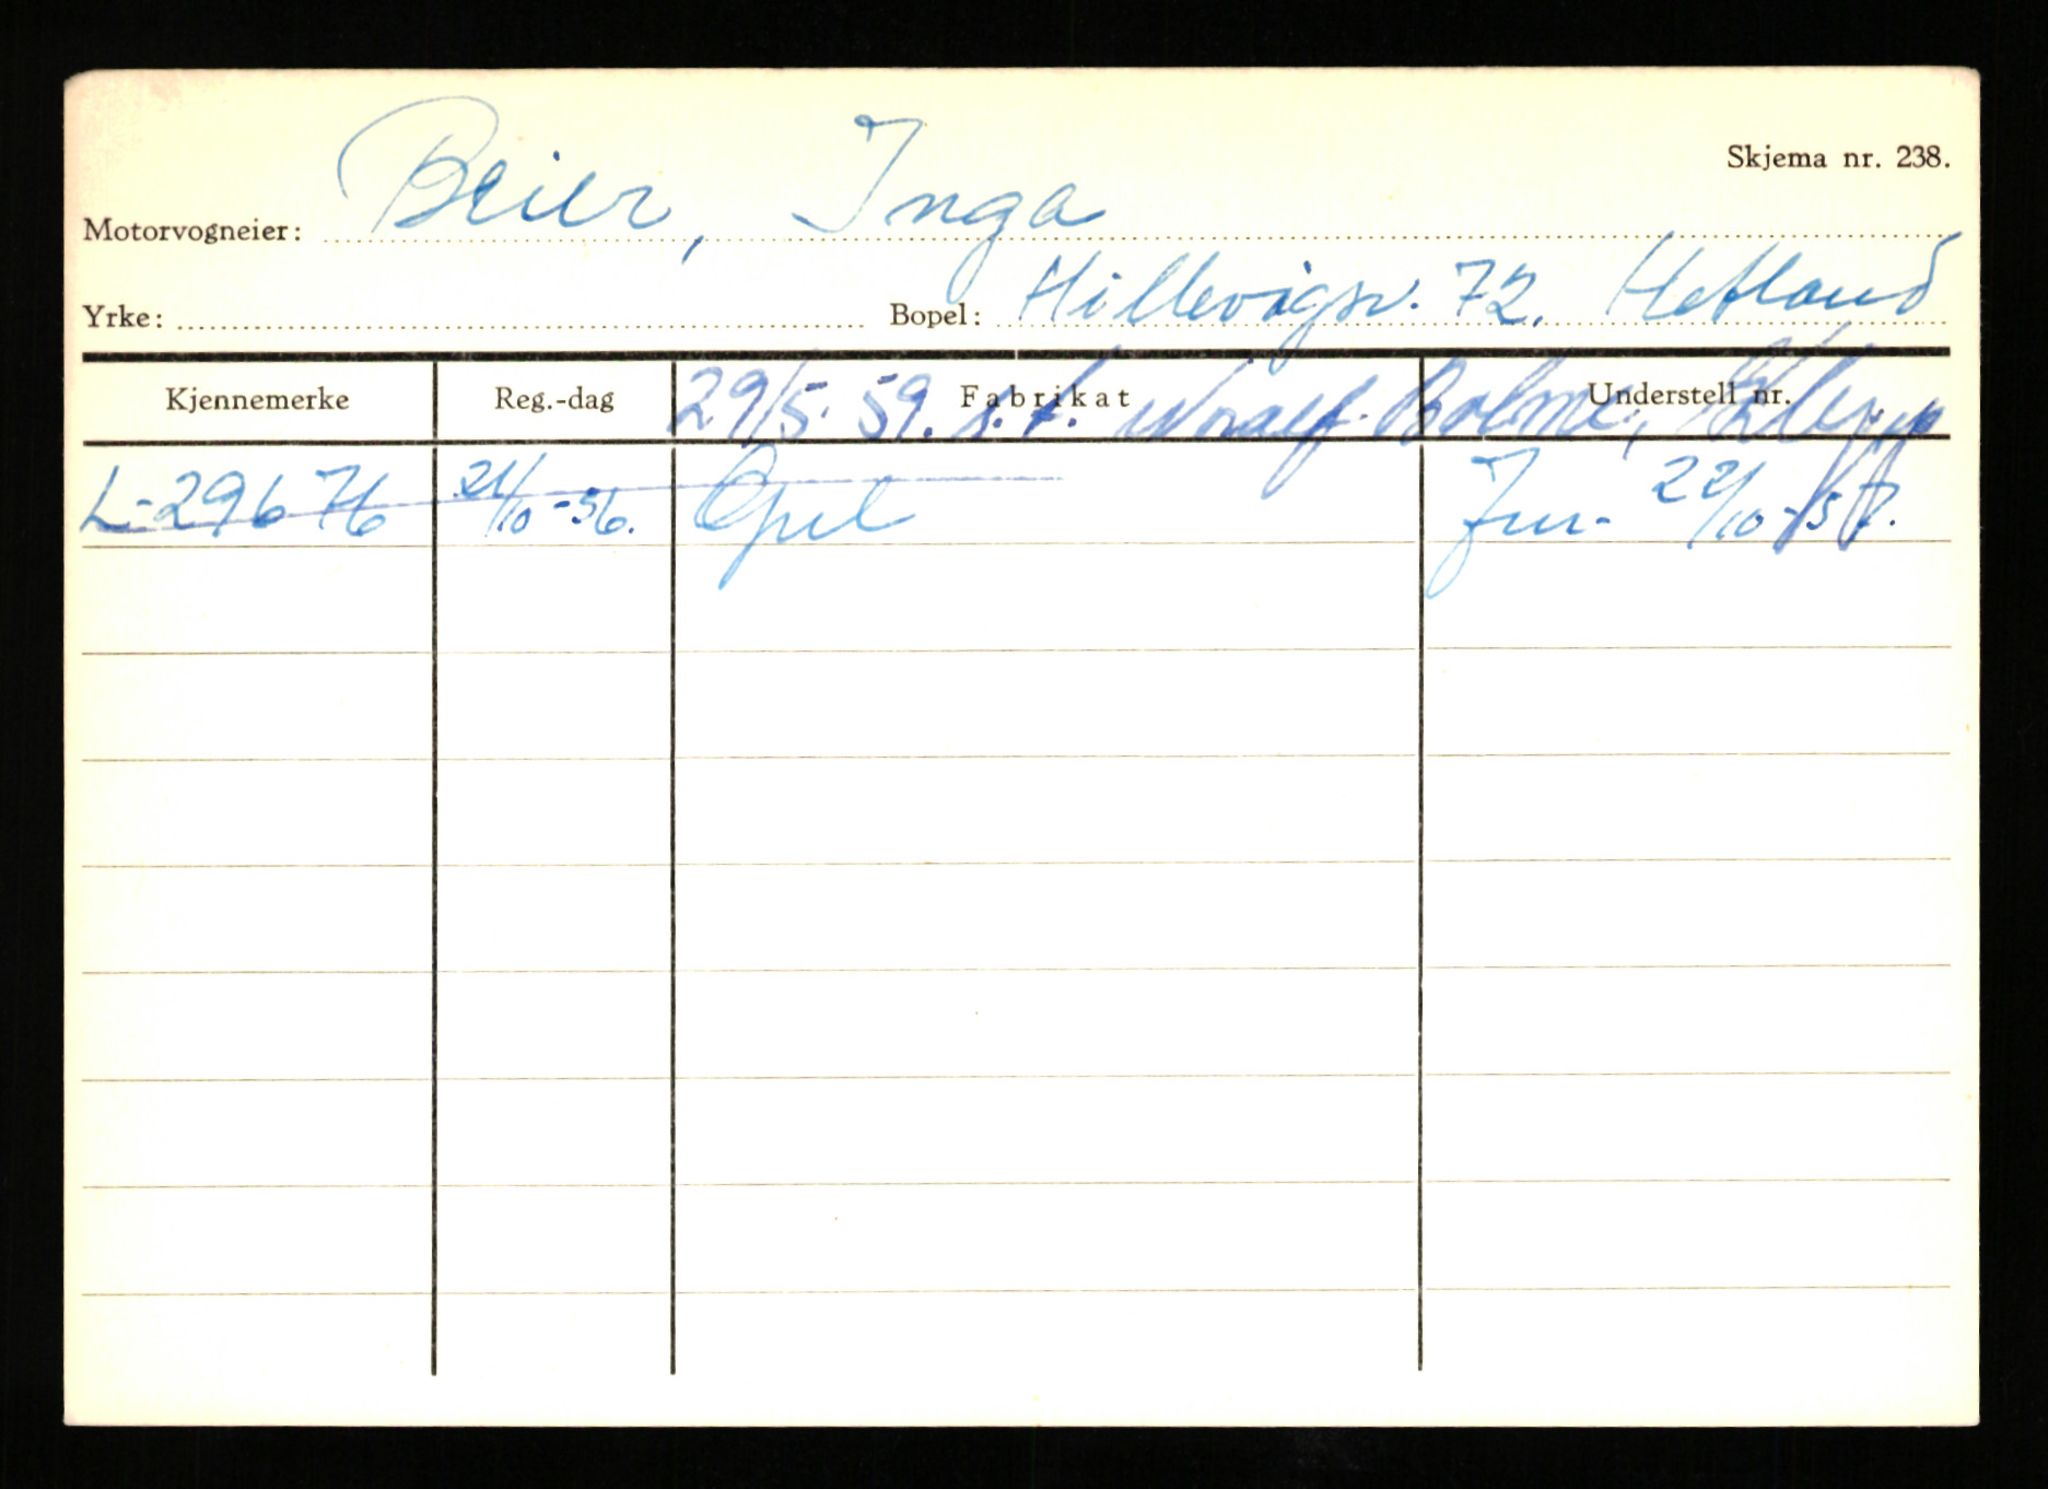 Skjema nr. 238.
Motorvogneier: Beier, Inga
Yrke: Bopel: Hillevågsv. 72. Hetland
Kjennemerke Reg.-dag Fabrikat Understell nr.
29/5. 59. s.f. Bolme,
L-29676 21/10-56. Opel 22/10-57.